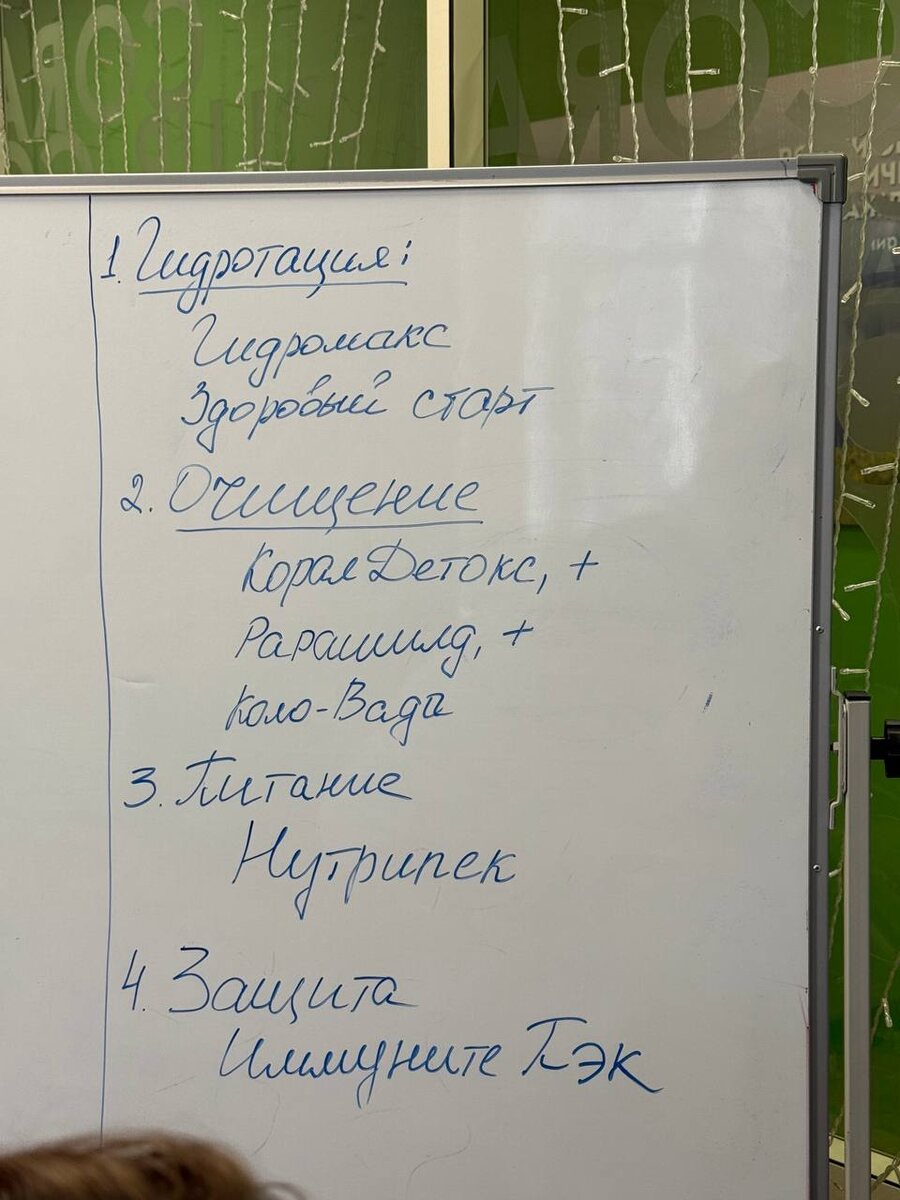 1. Гидротация:
Гидромакс
Здоровый старт
2. Очищение
Корал Детокс, +
Parашилд, +
Коло-Вада
3. Питание
Нутрипек
4. Защита
Иммуните Пэк